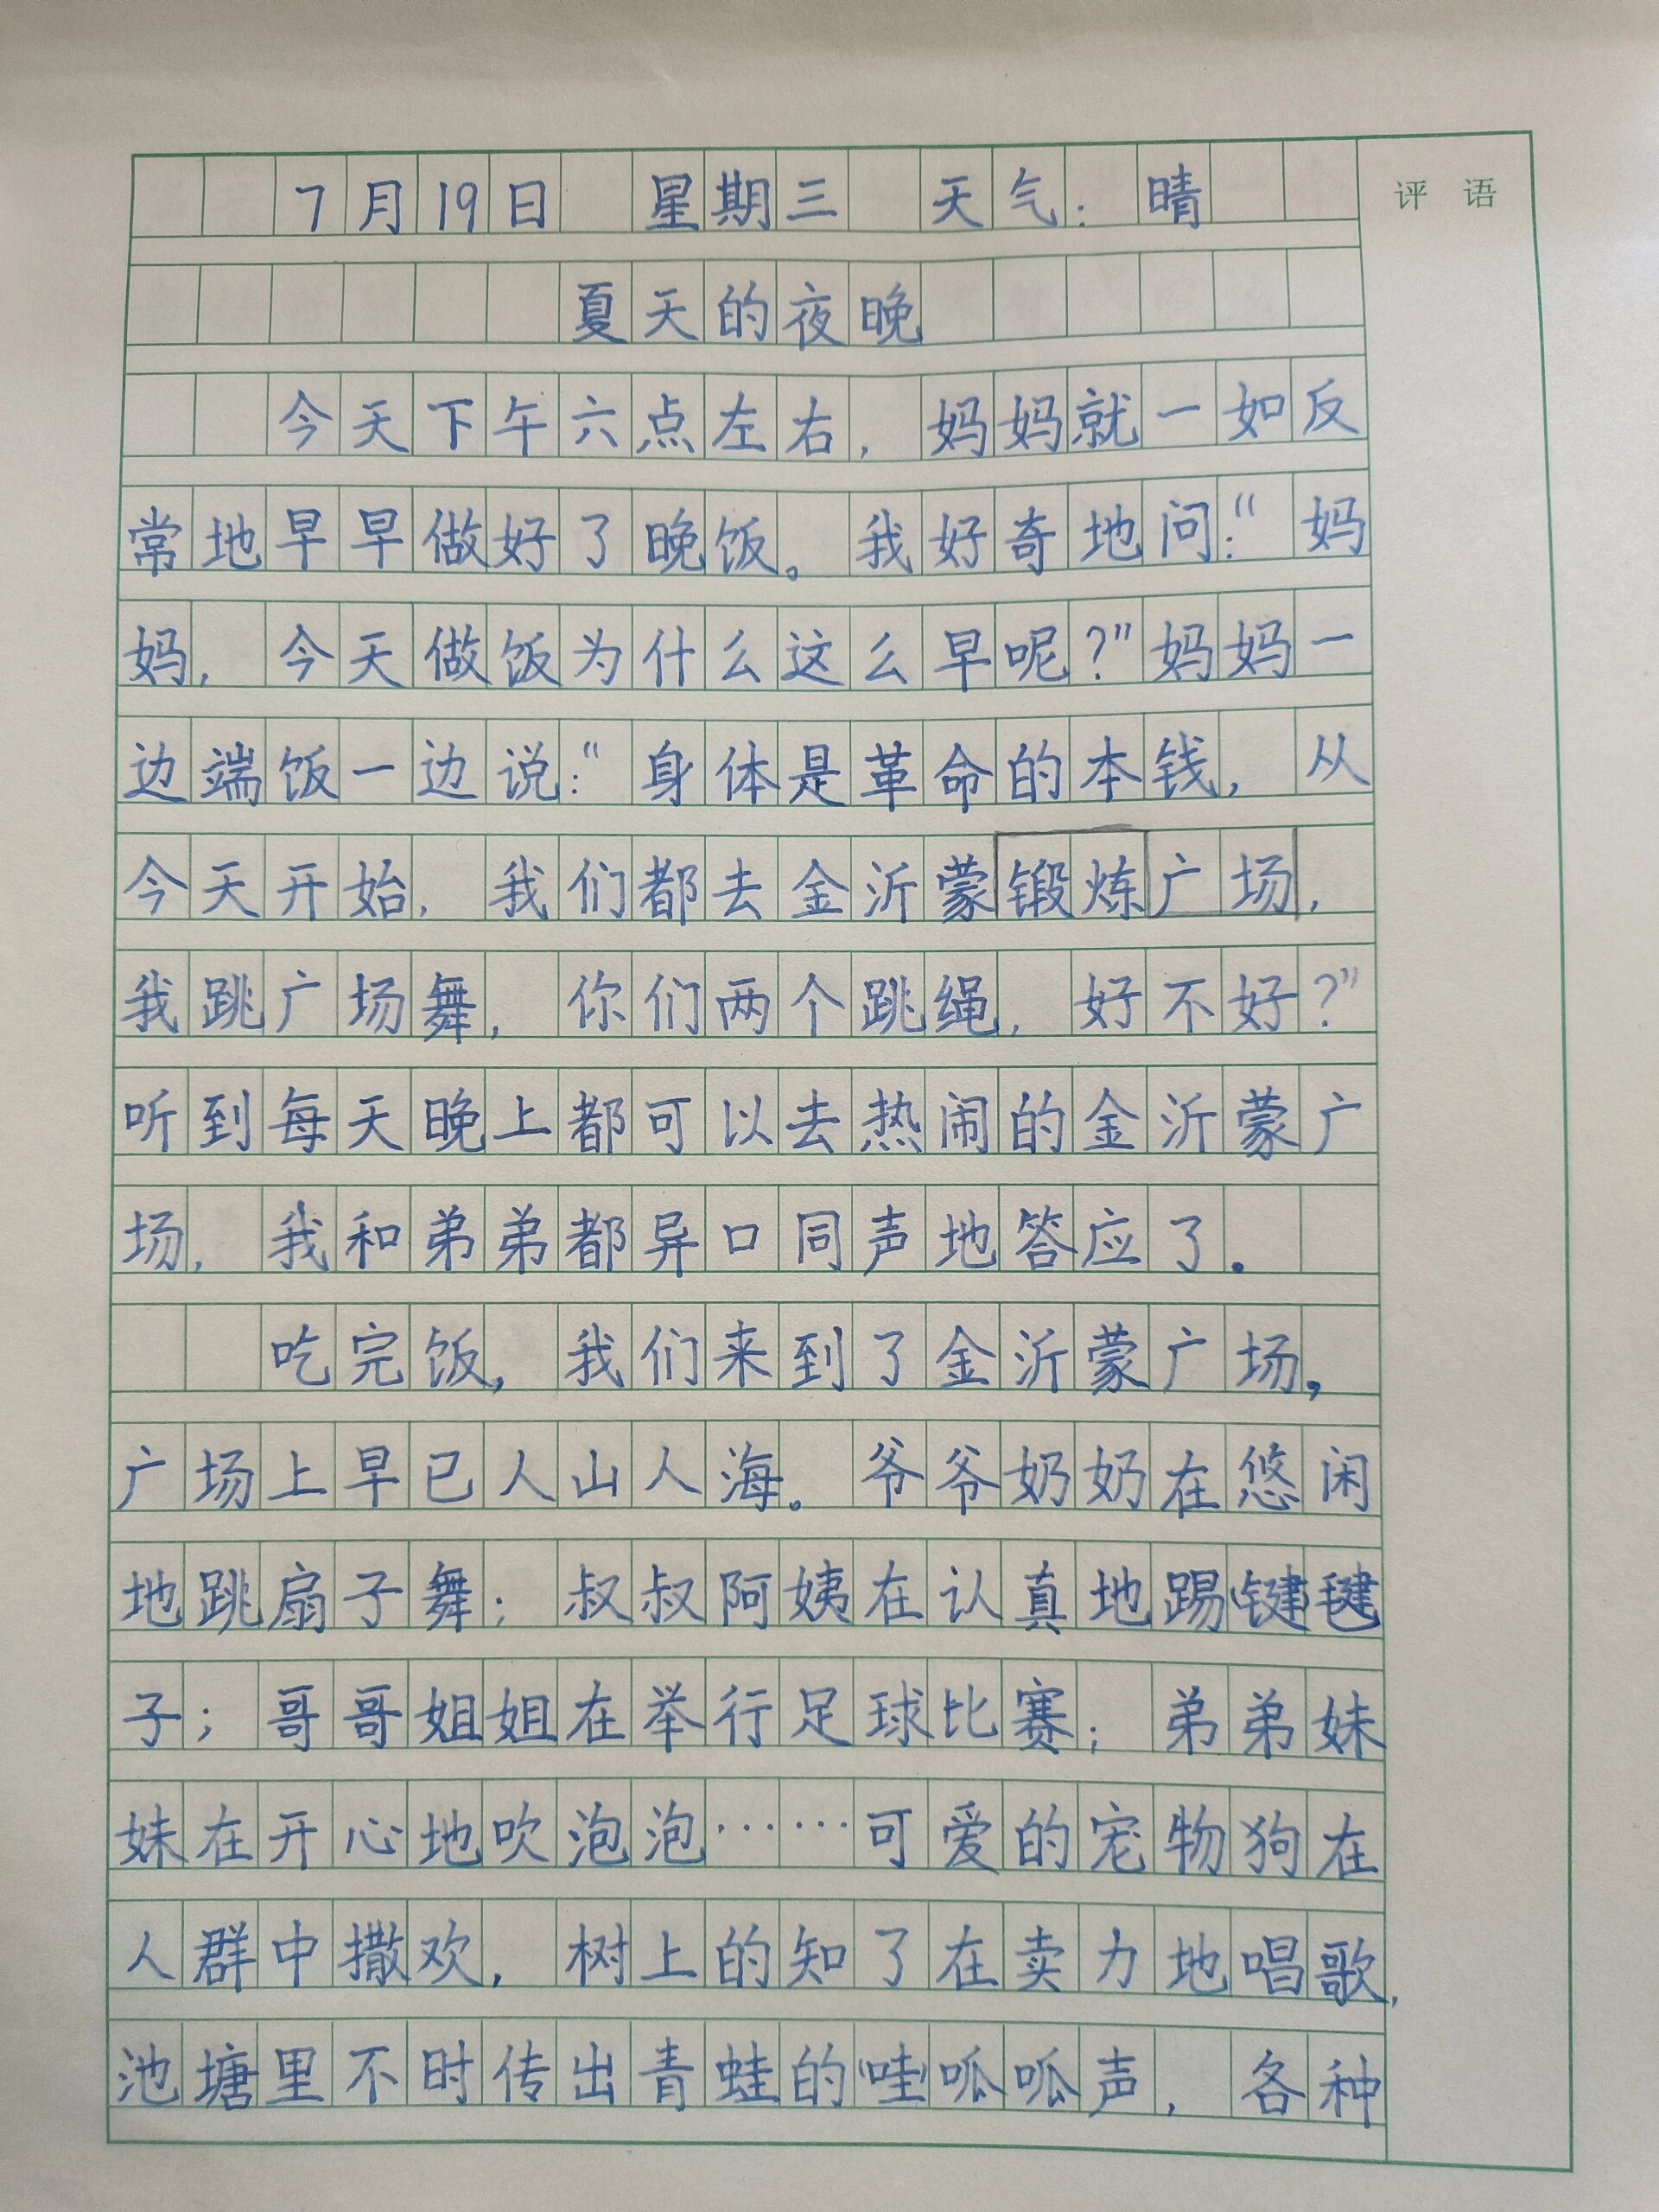 7月19日 星期三 天气：晴
评 语
夏天的夜晚
今天下午六点左右，妈妈就一如反
常地早早做好了晚饭。我好奇地问：“妈
妈，今天做饭为什么这么早呢？”妈妈一
边端饭一边说：“身体是革命的本钱，从
今天开始，我们都去金沂蒙锻炼广场，
我跳广场舞，你们两个跳绳，好不好？”
听到每天晚上都可以去热闹的金沂蒙广
场，我和弟弟都异口同声地答应了。
吃完饭，我们来到了金沂蒙广场，
广场上早已人山人海。爷爷奶奶在悠闲
地跳扇子舞；叔叔阿姨在认真地踢(键)毽
子；哥哥姐姐在举行足球比赛；弟弟妹
妹在开心地吹泡泡……可爱的宠物狗在
人群中撒欢，树上的知了在卖力地唱歌，
池塘里不时传出青蛙的(哇)呱呱声，各种